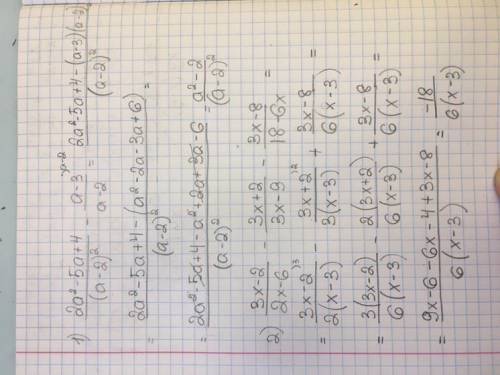 1) (2a²-5a+4)/(a-2)² - (a-3)/(a-2) ^(a-2) = (2a²-5a+4-(a-3)(a-2))/(a-2)²
= (2a²-5a+4-(a²-2a-3a+6))/(a-2)² =
= (2a²-5a+4-a²+2a+3a-6)/(a-2)² = (a²-2)/(a-2)²
2) (3x-2)/(2x-6) - (3x+2)/(3x-9) - (3x-8)/(18-6x) =
= (3x-2)/(2(x-3)) ^)3 - (3x+2)/(3(x-3)) ^)2 + (3x-8)/(6(x-3)) =
= (3(3x-2))/(6(x-3)) - (2(3x+2))/(6(x-3)) + (3x-8)/(6(x-3)) =
= (9x-6-6x-4+3x-8)/(6(x-3)) = (-18)/(6(x-3))